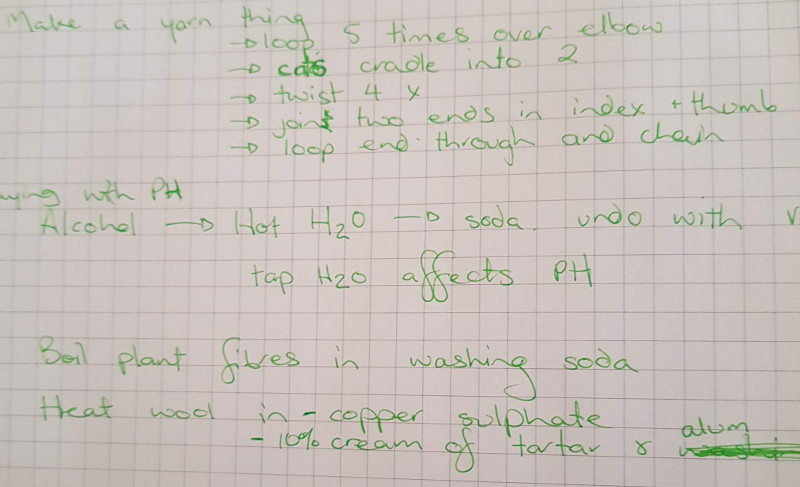 Make a yarn thing
→ loop 5 times over elbow
→ cats cradle into 2
→ twist 4 x
→ join two ends in index + thumb
→ loop end through and chain
with PH
Alcohol → Hot H₂O → soda. undo with
tap H2O affects PH
Boil plant fibres in washing soda
Heat wool in - copper sulphate
- 10% cream of tartar & alum